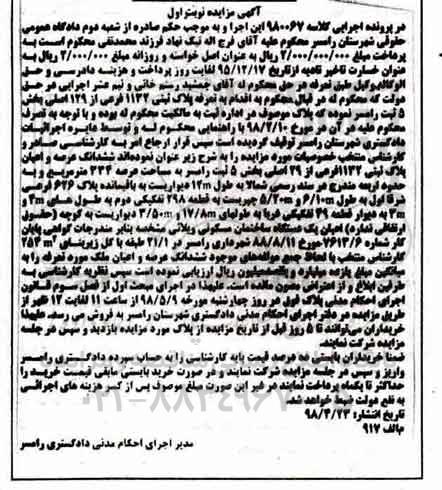 آگهی مزایده نوبت اول
در پرونده اجرایی کلاسه ۹۸۰۰۶۷ این اجرا و به موجب حکم صادره از شعبه دوم دادگاه عمومی
حقوقی شهرستان رامسر محکوم علیه آقای فرج اله نیک نهاد فرزند محمدتقی محکوم است به
پرداخت مبلغ ۲/۰۰۰/۰۰۰/۰۰۰ ریال به عنوان اصل خواسته و روزانه مبلغ ۲/۰۰۰/۰۰۰ ریال به
عنوان خسارت تاخیر تادیه از تاریخ ۹۵/۱۲/۱۷ لغایت روز پرداخت و هزینه دادرسی و حق
الوکاله وکیل طبق تعرفه در حق محکوم له آقای جمشید رستم خانی و نیم عشر اجرایی در حق
دولت که محکوم له در قبال محکوم به اقدام به تعرفه پلاک ثبتی ۱۱۳۲ فرعی از ۱۲۹ اصلی بخش
۵ ثبت رامسر نموده که پلاک موصوف در اداره ثبت به مالکیت محکوم له بوده و با توجه به تصرف
محکوم علیه در آن در مورخ ۹۸/۲/۱۰ با راهنمایی محکوم له و توسط دایره اجرائیات
دادگستری شهرستان رامسر توقیف گردیده است سپس قرار ارجاع امر به کارشناسی صادر و
کارشناس منتخب خصوصیات مورد مزایده را به شرح زیر عنوان نموده‌اند ششدانگ عرصه و اعیان
پلاک ثبتی ۱۱۳۲ فرعی از ۲۹ اصلی بخش ۵ ثبت رامسر به مساحت عرصه ۳۳۴ مترمربع و به
حدود اربعه مندرج در سند رسمی شمالا به طول ۱۲m دیواریست به باقیمانده پلاک ۶۲۶ فرعی
شرقا اول به طول ۶/۱۰m و ۵/۲۰m چهرست به قطعه ۲۹۸ تفکیکی دوم به طول های ۳m و
۳m به دیوار قطعه ۴۹ تفکیکی غربا به طولهای ۱۷/۸m و ۳/۵۰m دیواریست به کوچه (حقوق
ارتفاقی ندارد) اعیان یک دستگاه ساختمان مسکونی ویلائی مشخصه بنابر مندرجات گواهی پایان
کار شماره ۷۶۱۳/۶ مورخ ۸۸/۸/۱۱ شهرداری رامسر در ۲۱/۱ طبقه با کل زیربنای ۲۵۴ m۲
کارشناس منتخب با لحاظ جمع مولفه‌های موجود ششدانگ عرصه و اعیان ملک مورد تعرفه را به
میانگین مبلغ یازده میلیارد و پانصدمیلیون ریال ارزیابی نموده است سپس نظریه کارشناسی به
طرفین ابلاغ و از اعتراض مصون مانده است. علیهذا در اجرای مبحث اول از فصل سوم قانون
اجرای احکام مدنی پلاک فوق در روز چهارشنبه مورخه ۹۸/۵/۹ از ساعت ۱۱ لغایت ۱۲ ظهر از
طریق مزایده در دفتر اجرای احکام مدنی دادگستری شهرستان رامسر به فروش می رسد. علیهذا
خریداران می‌توانند تا ۵ روز قبل از تاریخ مزایده از پلاک مورد مزایده بازدید و سپس در جلسه
مزایده شرکت نمایند.
ضمنا خریداران بایستی ده درصد قیمت پایه کارشناسی را به حساب سپرده دادگستری رامسر
واریز و سپس در جلسه مزایده شرکت نمایند و در صورت خرید بایستی مابقی قیمت خرید را
حداکثر تا یکماه پرداخت نمایند در غیر این صورت مبلغ موصوف پس از کسر هزینه های اجرائی
به نفع دولت ضبط خواهد شد.
تاریخ انتشار: ۹۸/۴/۲۳
م‌الف ۹۱۷
مدیر اجرای احکام مدنی دادگستری رامسر